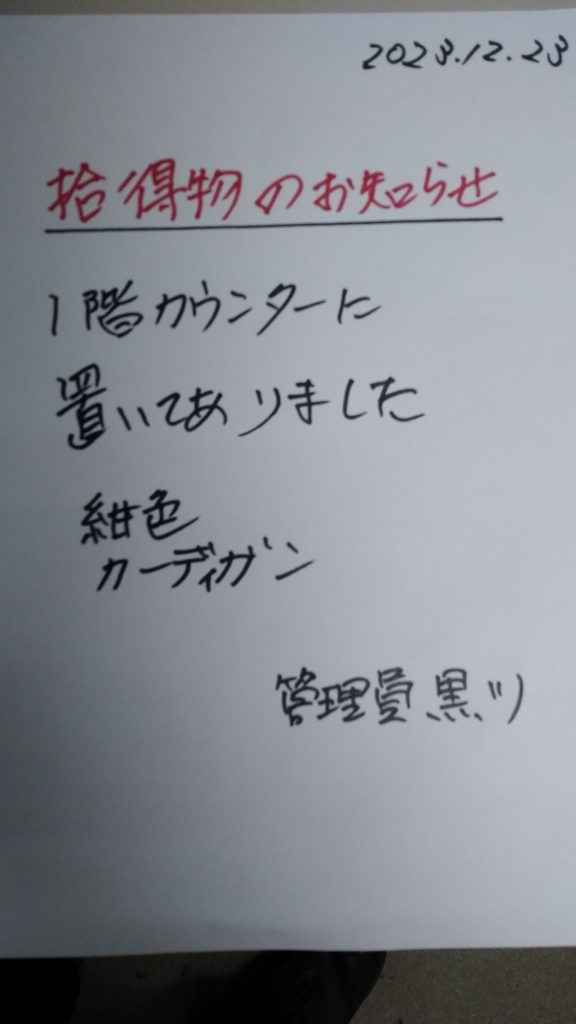 2023.12.23
拾得物のお知らせ
1階カウンターに
置いてありました
紺色
カーディガン
管理員 黒川